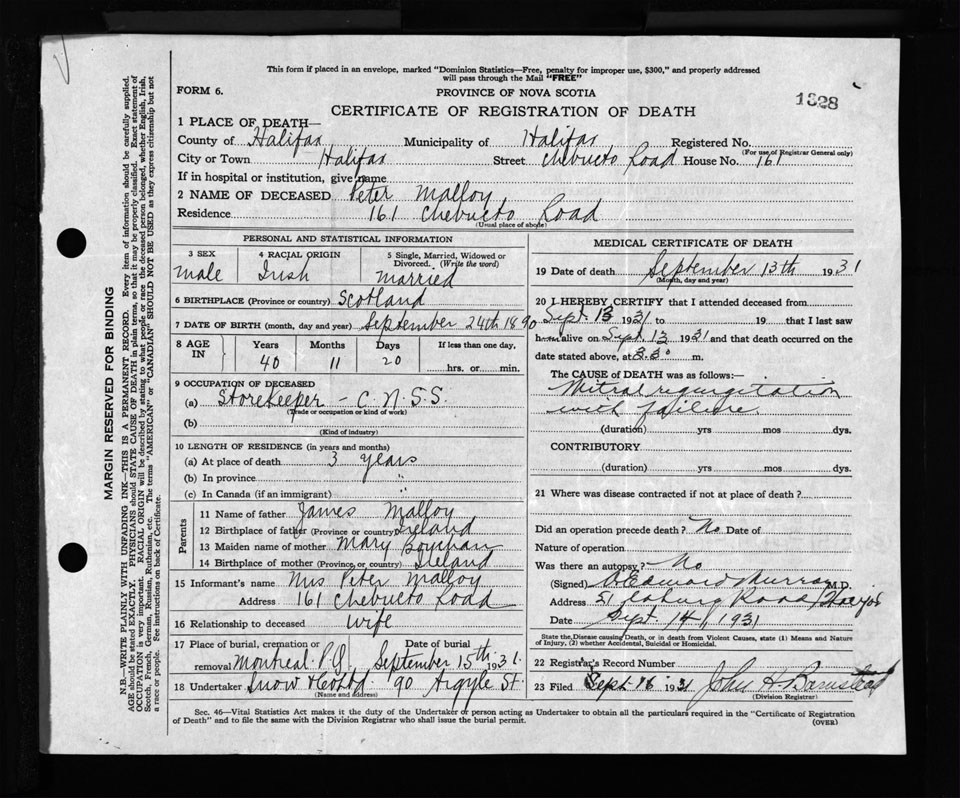 This form if placed in an envelope, marked "Dominion Statistics—Free, penalty for improper use, $300," and properly addressed
will pass through the Mail "FREE"
FORM 6.
PROVINCE OF NOVA SCOTIA
1828
CERTIFICATE OF REGISTRATION OF DEATH
1 PLACE OF DEATH—
County of Halifax Municipality of Halifax Registered No.
(For use of Registrar General only)
City or Town Halifax Street Chebucto Road House No. 161
If in hospital or institution, give name
2 NAME OF DECEASED Peter Malloy
Residence 161 Chebucto Road
(Usual place of abode)
PERSONAL AND STATISTICAL INFORMATION
3 SEX 4 RACIAL ORIGIN 5 Single, Married, Widowed or
Divorced. (Write the word)
Male Irish married
6 BIRTHPLACE (Province or country) Scotland
7 DATE OF BIRTH (month, day and year) September 24th 1890
8 AGE IN Years Months Days If less than one day,
40 11 20 hrs. or min.
9 OCCUPATION OF DECEASED
(a) Storekeeper - C.N.S.S.
(Trade or occupation or kind of work)
(b)
(Kind of industry)
10 LENGTH OF RESIDENCE (in years and months)
(a) At place of death 3 years
(b) In province "
(c) In Canada (if an immigrant)
Parents
11 Name of father James Malloy
12 Birthplace of father (Province or country) Ireland
13 Maiden name of mother Mary
14 Birthplace of mother (Province or country) Ireland
15 Informant's name Mrs Peter Malloy
Address 161 Chebucto Road
16 Relationship to deceased wife
17 Place of burial, cremation or Date of burial
removal Montreal P.Q. September 15th 1931.
18 Undertaker Snow & Co Ltd 90 Argyle St.
(Name and address)
MEDICAL CERTIFICATE OF DEATH
19 Date of death September 13th 1931
(Month, day and year)
20 I HEREBY CERTIFY that I attended deceased from
Sept. 13 1931 to 19 that I last saw
him alive on Sept. 13 1931 and that death occurred on the
date stated above, at 3.30 m.
The CAUSE of DEATH was as follows:—
Mitral regurgitation
with failure
(duration) yrs mos dys.
CONTRIBUTORY
(duration) yrs mos dys.
21 Where was disease contracted if not at place of death?
Did an operation precede death? No Date of
Nature of operation
Was there an autopsy? No
(Signed) Edward Murray M.D.
Address 51 Coburg Road
Date Sept. 14, 1931
State the Disease causing Death, or in death from Violent Causes, state (1) Means and Nature
of Injury, (2) whether Accidental, Suicidal or Homicidal.
22 Registrar's Record Number
23 Filed Sept 16 1931 John H Barnstead
(Division Registrar)
Sec. 46—Vital Statistics Act makes it the duty of the Undertaker or person acting as Undertaker to obtain all the particulars required in the "Certificate of Registration
of Death" and to file the same with the Division Registrar who shall issue the burial permit.
(OVER)
MARGIN RESERVED FOR BINDING
N.B.—WRITE PLAINLY WITH UNFADING INK—THIS IS A PERMANENT RECORD. Every item of information should be carefully supplied.
AGE should be stated EXACTLY. PHYSICIANS should STATE CAUSE OF DEATH in plain terms, so that it may be properly classified. Exact statement of
OCCUPATION is very important. RACIAL ORIGIN will be described by stating to what people or race the deceased person belonged, whether English, Irish,
Scotch, French, German, Russian, Ruthenian, etc. The terms "AMERICAN" or "CANADIAN" SHOULD NOT BE USED as they express citizenship but not
a race or people. See instructions on back of Certificate.